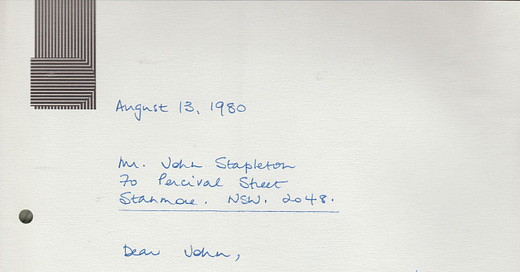 August 13, 1980
Mr. John Stapleton
70 Percival Street
Stanmore. NSW. 2048.
Dear John,